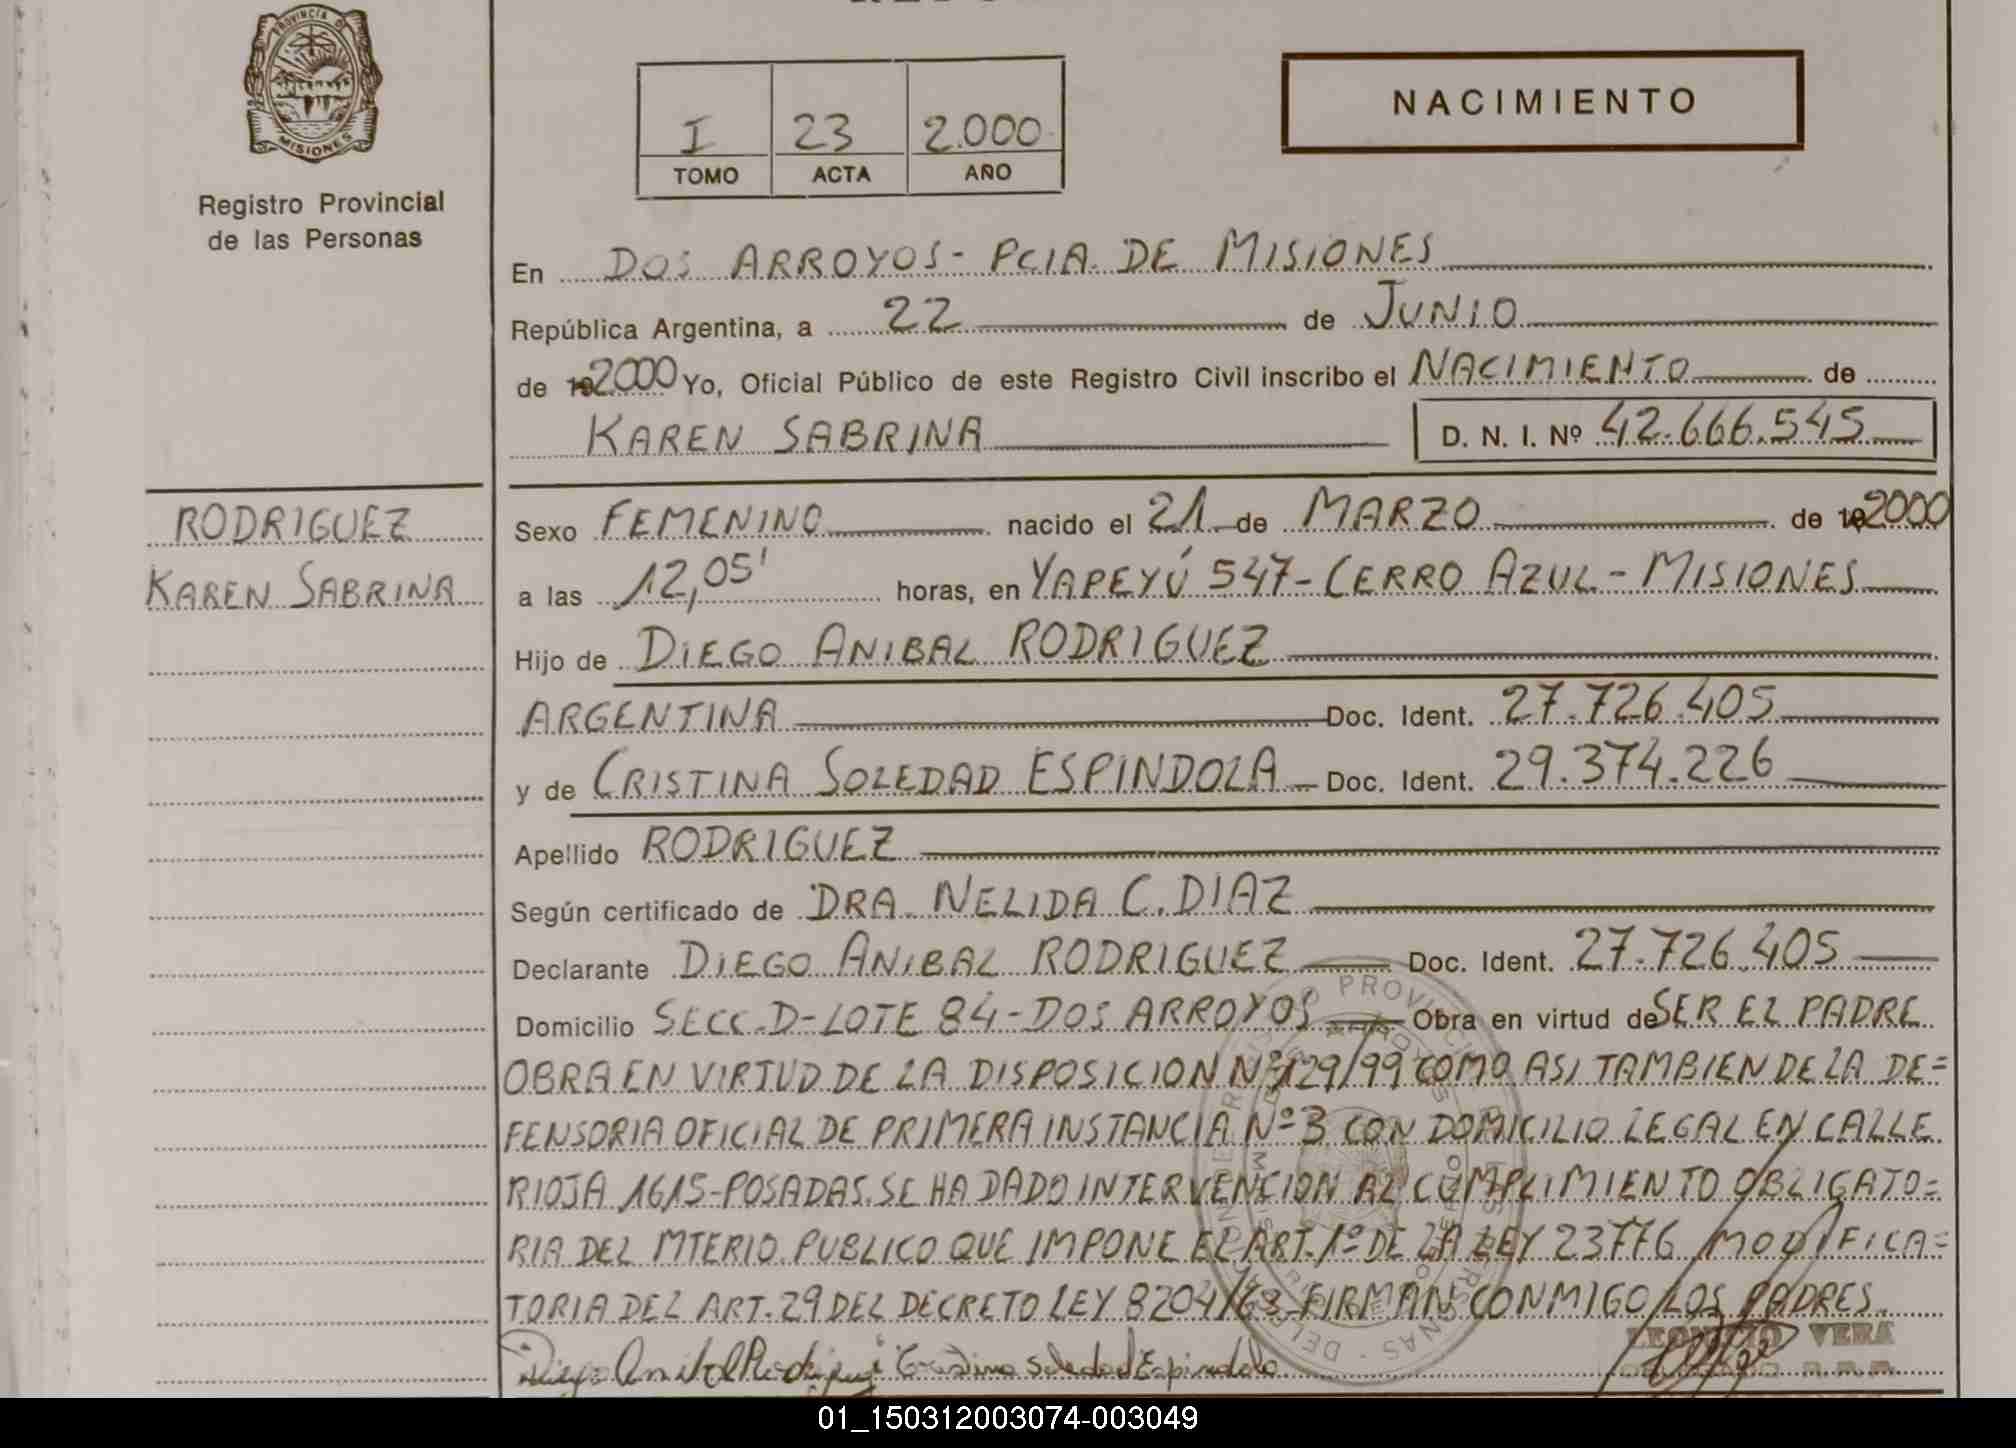 PROVINCIA DE
MISIONES
Registro Provincial
de las Personas
I 23 2.000
TOMO ACTA AÑO
NACIMIENTO
En DOS ARROYOS - PCIA. DE MISIONES
República Argentina, a 22 de JUNIO
de 192000 Yo, Oficial Público de este Registro Civil inscribo el NACIMIENTO de
KAREN SABRINA D. N. I. Nº 42.666.545
RODRIGUEZ
KAREN SABRINA
Sexo FEMENINO nacido el 21 de MARZO de 192000
a las 12,05' horas, en YAPEYÚ 547 - CERRO AZUL - MISIONES
Hijo de DIEGO ANIBAL RODRIGUEZ
ARGENTINA Doc. Ident. 27.726.405
y de CRISTINA SOLEDAD ESPINDOLA Doc. Ident. 29.374.226
Apellido RODRIGUEZ
Según certificado de DRA. NELIDA C. DIAZ
Declarante DIEGO ANIBAL RODRIGUEZ Doc. Ident. 27.726.405
Domicilio SECC. D - LOTE 84 - DOS ARROYOS Obra en virtud de SER EL PADRE
OBRA EN VIRTUD DE LA DISPOSICION Nº 129/99 COMO ASI TAMBIEN DE LA DE=
FENSORIA OFICIAL DE PRIMERA INSTANCIA Nº 3 CON DOMICILIO LEGAL EN CALLE
RIOJA 1615 - POSADAS. SE HA DADO INTERVENCION AL CUMPLIMIENTO OBLIGATO=
RIA DEL MTERIO. PUBLICO QUE IMPONE EL ART. 1º DE LA LEY 23776 MODIFICA=
TORIA DEL ART. 29 DEL DECRETO LEY 8204/63 - FIRMAN CONMIGO LOS PADRES.
Diego Anibal Rodriguez Cristina Soledad Espindola
VERA
01_150312003074-003049